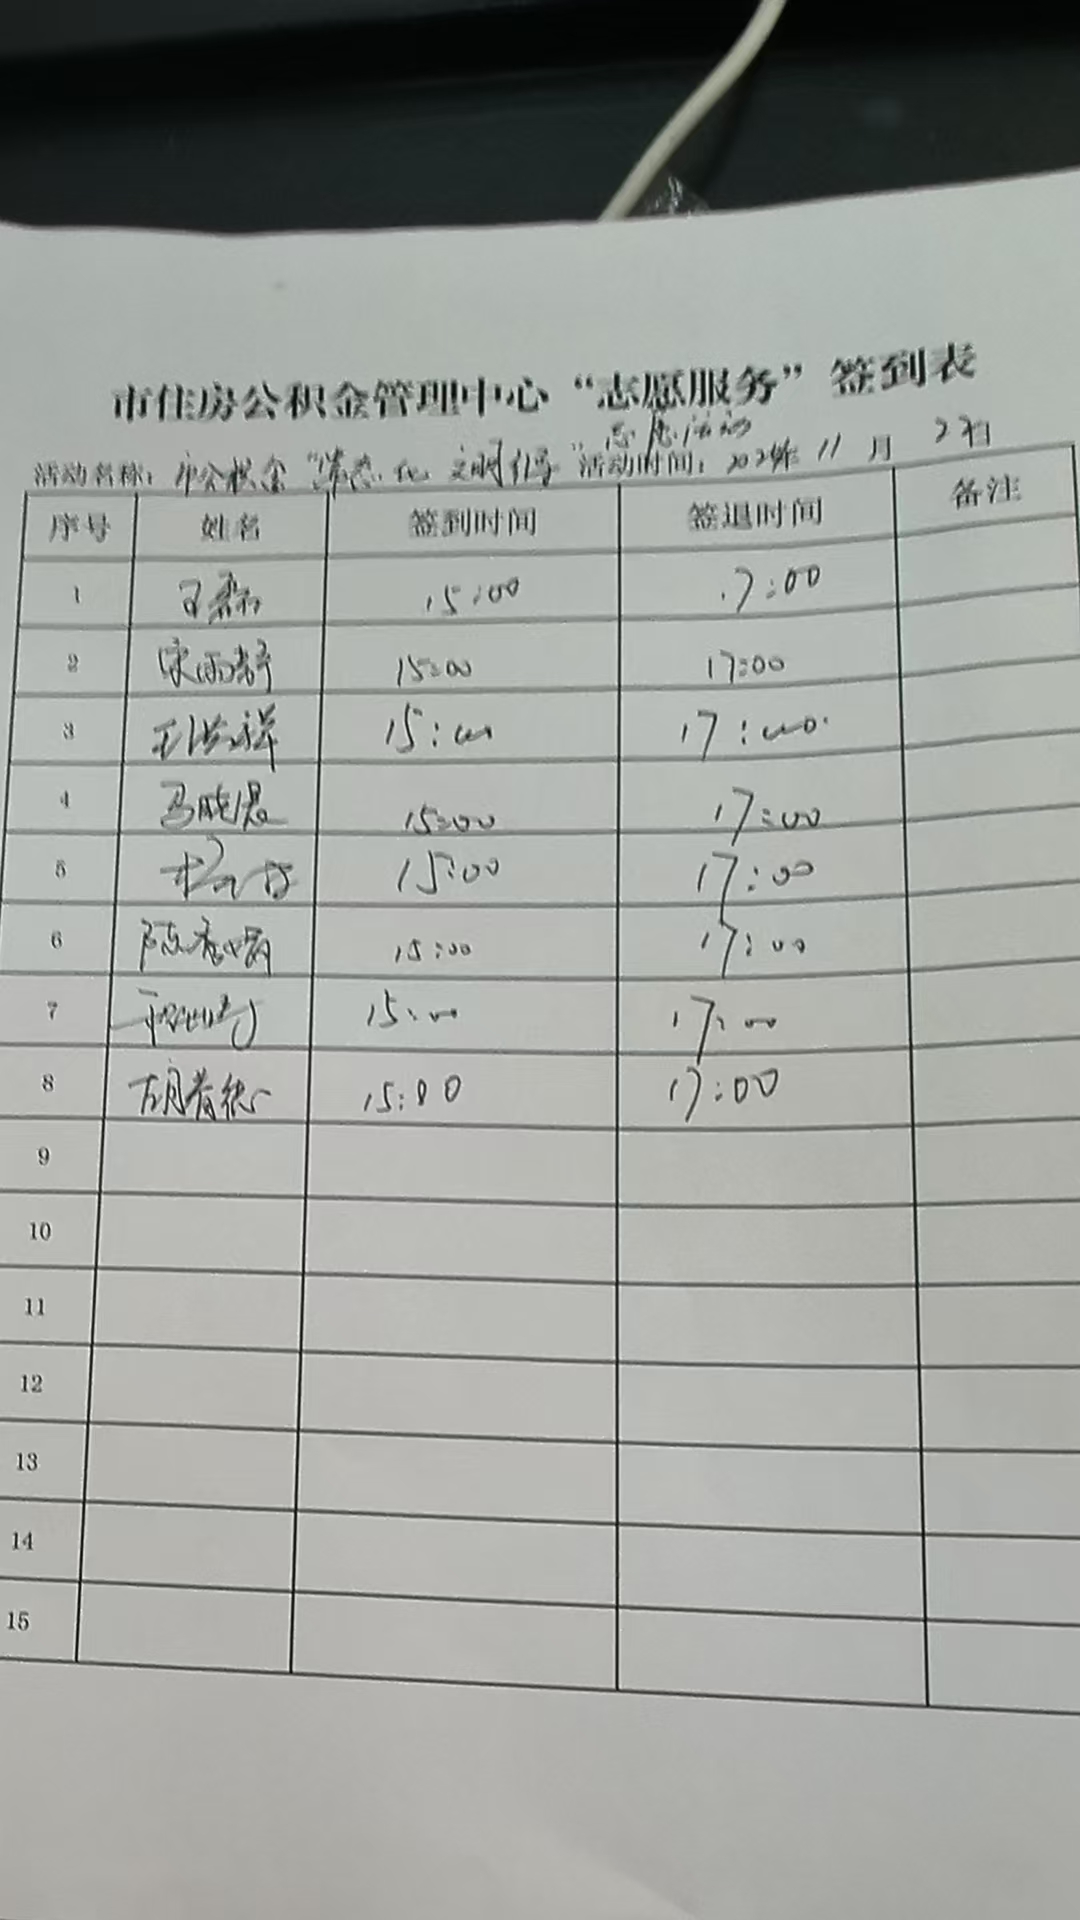 市住房公积金管理中心“志愿服务”签到表
志愿活动
活动名称：市公积金“常态化 文明引导”活动时间：2024年 11 月 27日
序号 姓名 签到时间 签退时间 备注
1 王 15:00 17:00
2 宋雨 15:00 17:00
3 祥 15:00 17:00
4 马晓 15:00 17:00
5 15:00 17:00
6 陈 15:00 17:00
7 15:00 17:00
8 胡 15:00 17:00
9
10
11
12
13
14
15